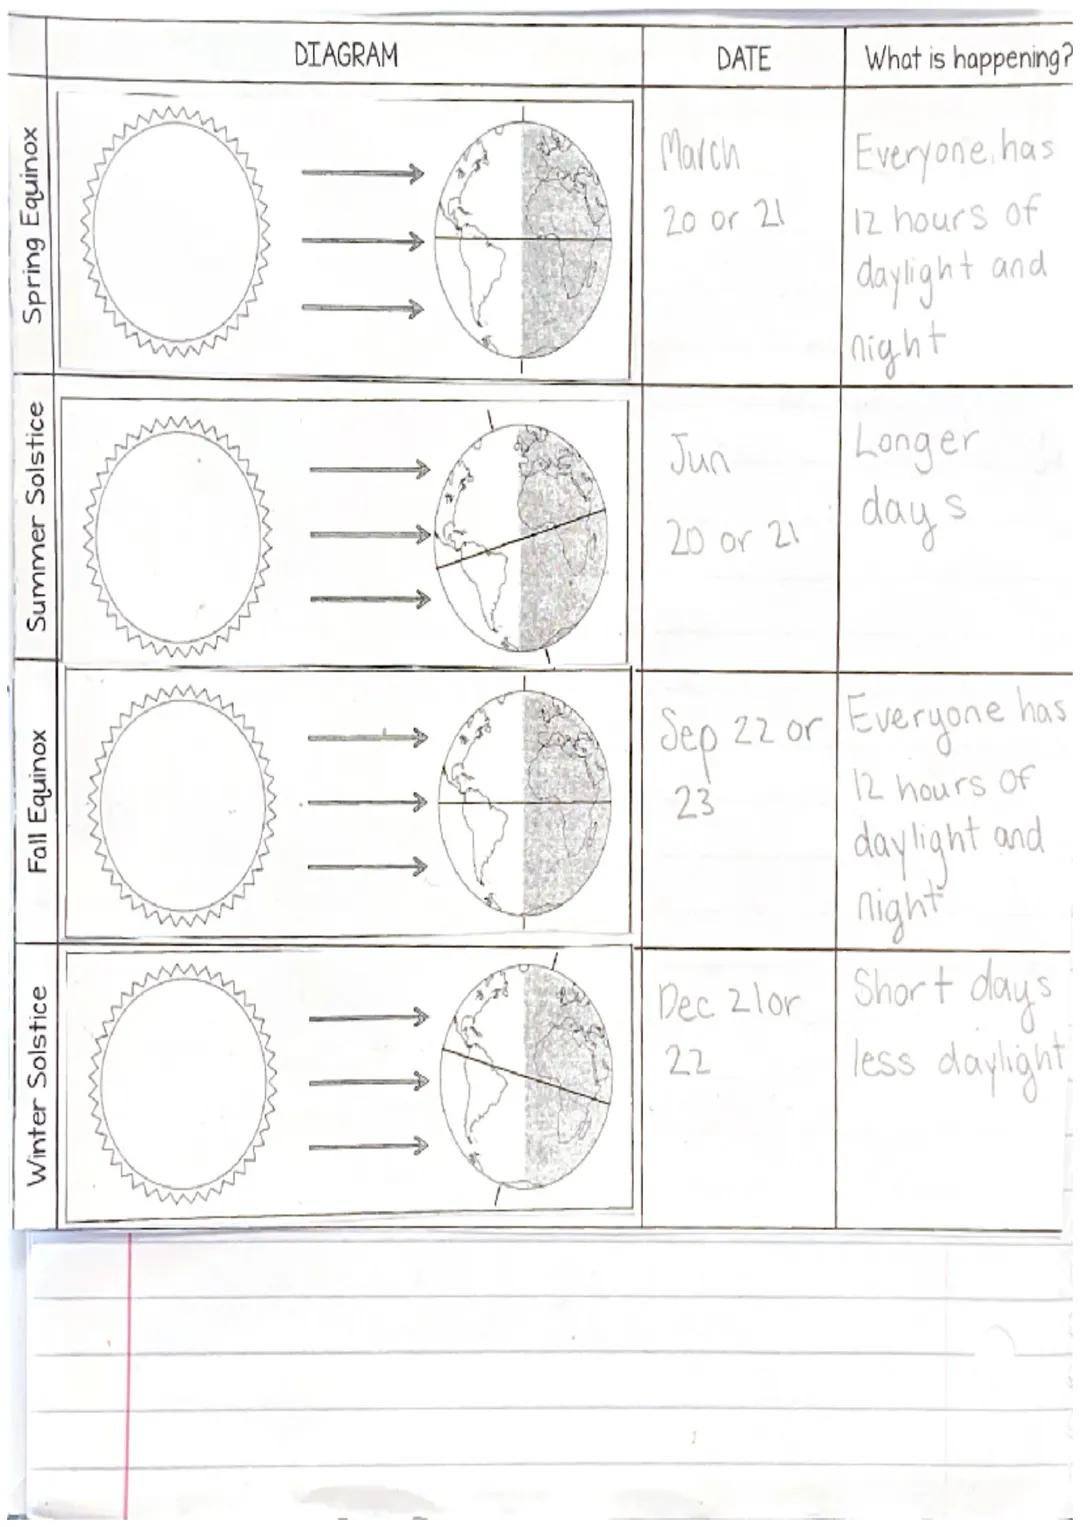 DIAGRAM
DATE
What is happening?
Spring Equinox
March
20 or 21
Everyone has
12 hours of
daylight and
night
Summer Solstice
Jun
20 or 21
Longer
days
Fall Equinox
Sep 22 or
23
Everyone has
12 hours of
daylight and
night
Winter Solstice
Dec 21 or
22
Short days
less daylight